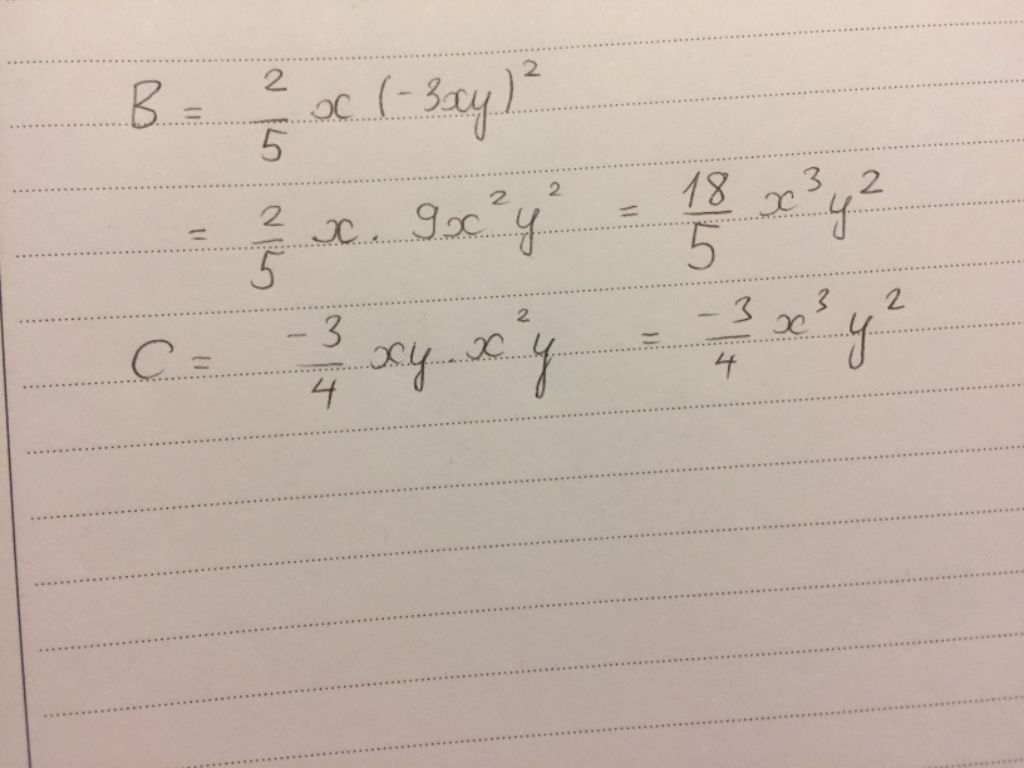 B = 2/5 x (-3xy)²
= 2/5 x . 9x²y² = 18/5 x³y²
C = -3/4 xy . x²y = -3/4 x³y²